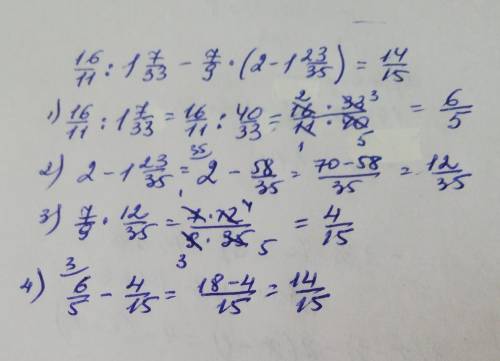 16/11 : 1 7/33 − 7/9 · (2 − 1 23/35) = 14/15
1) 16/11 : 1 7/33 = 16/11 : 40/33 = 16 · 33/11 · 40 = 6/5
2) 2 − 1 23/35 = 2 − 58/35 = 70 − 58/35 = 12/35
3) 7/9 · 12/35 = 7 · 12/9 · 35 = 4/15
4) 6/5 − 4/15 = 18 − 4/15 = 14/15